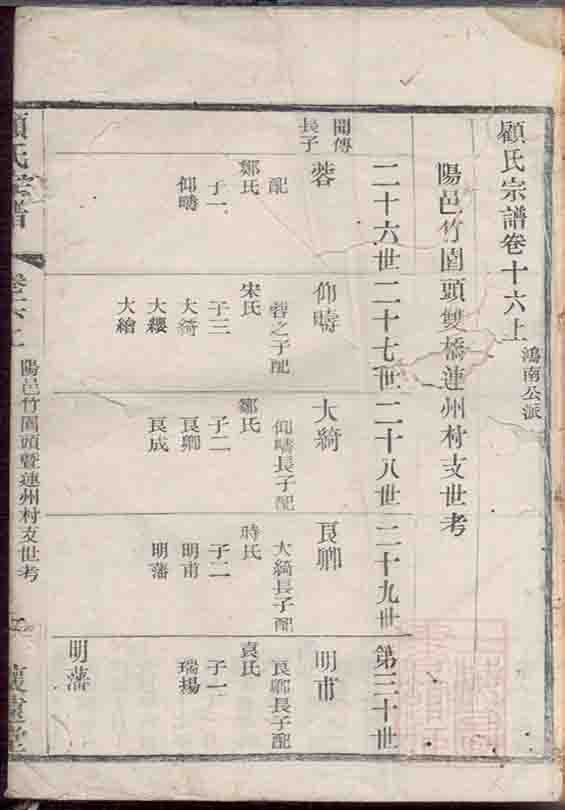 顧氏宗譜卷十六上
鴻南公派
陽邑竹園頭雙橋蓮州村支世考
二十六世
二十七世
二十八世
二十九世
第三十世
聞傳
長子
蓉
配
鄭氏
子一
仰疇
仰疇
蓉之子配
宋氏
子三
大綺
大纓
大繪
大綺
仰疇長子配
鄒氏
子二
良卿
良成
良卿
大綺長子配
時氏
子二
明甫
明藩
明甫
良卿長子配
袁氏
子一
瑞揚
明藩
顧氏宗譜
陽邑竹園頭暨蓮州村支世考